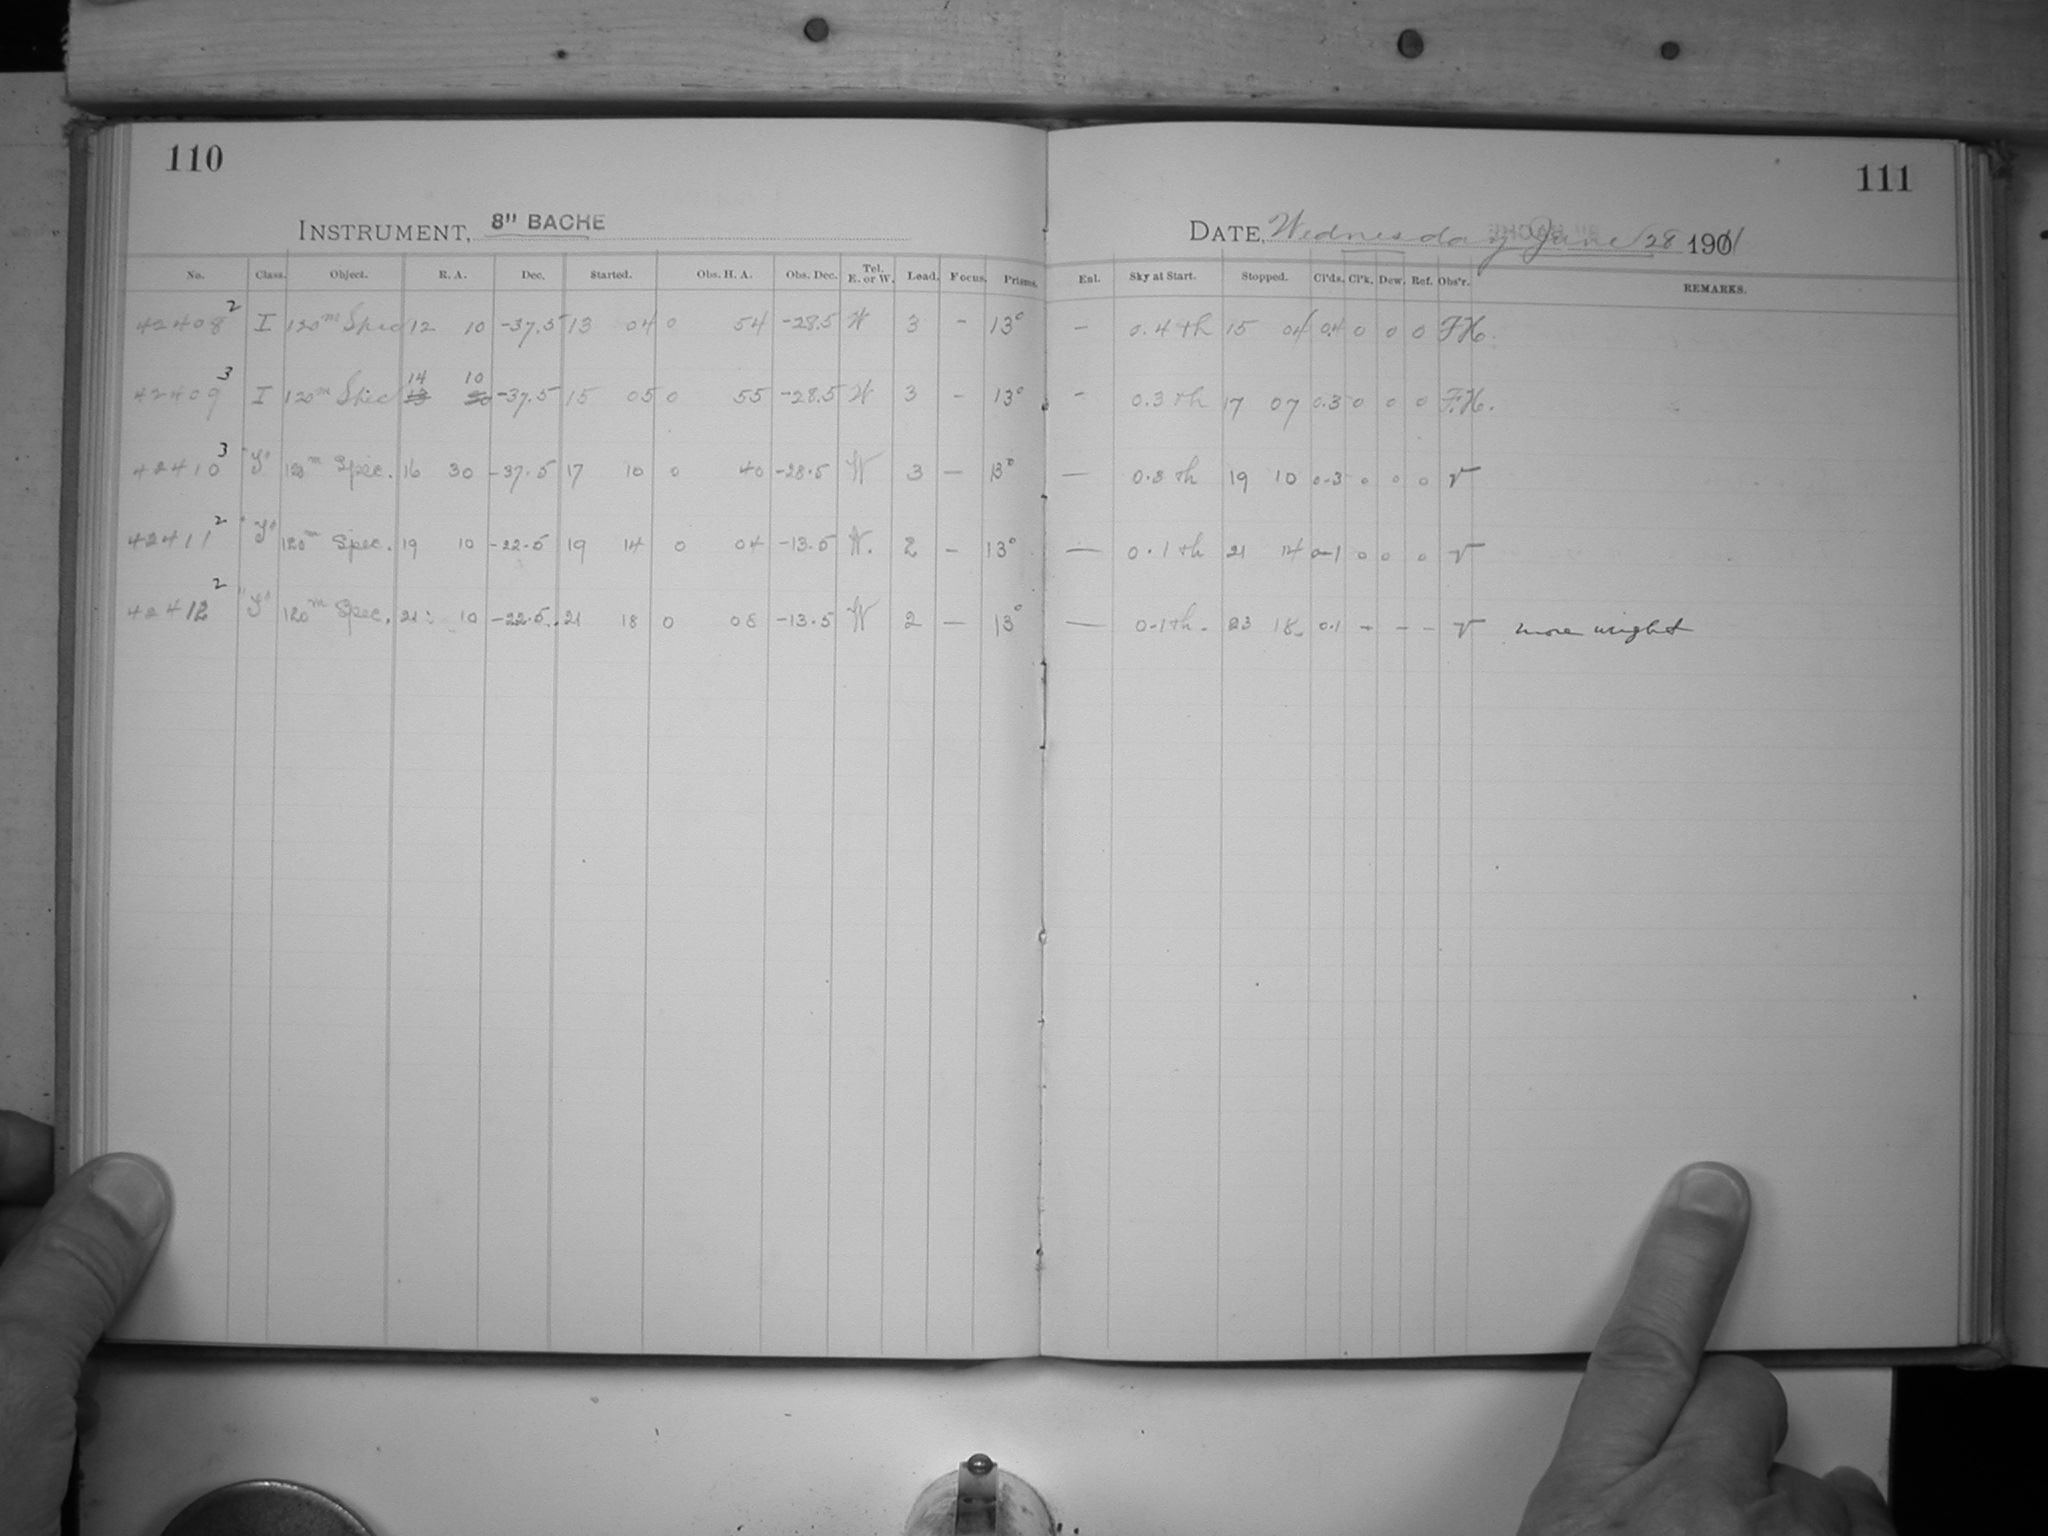 110
INSTRUMENT, 8" BACHE
No. Class. Object. R. A. Dec. Started. Obs. H. A. Obs. Dec. Tel. E. or W. Load. Focus. Prisms.
42408 2 I 120m Spec 12 10 -37.5 13 04 0 54 -28.5 W 3 - 13°
14 10
42409 3 I 120m Spec -37.5 15 05 0 55 -28.5 W 3 - 13°
42410 3 "I" 120m Spec. 16 30 -37.5 17 10 0 40 -28.5 W 3 — 13°
42411 2 "I" 120m Spec. 19 10 -22.5 19 14 0 04 -13.5 W. 2 — 13°
42412 2 "I" 120m Spec. 21 10 -22.5 21 18 0 08 -13.5 W 2 — 13°
111
DATE, Wednesday June 28 1901
Enl. Sky at Start. Stopped. Cl'ds. Cl'k. Dew. Ref. Obs'r. REMARKS.
- 0.4 th 15 04 0.4 0 0 0 F.H.
- 0.3 th 17 07 0.3 0 0 0 F.H.
— 0.3 th 19 10 0.3 0 0 0 V
— 0.1 th 21 14 0.1 0 0 0 V
— 0.1 th. 23 18 0.1 - - - V more weight